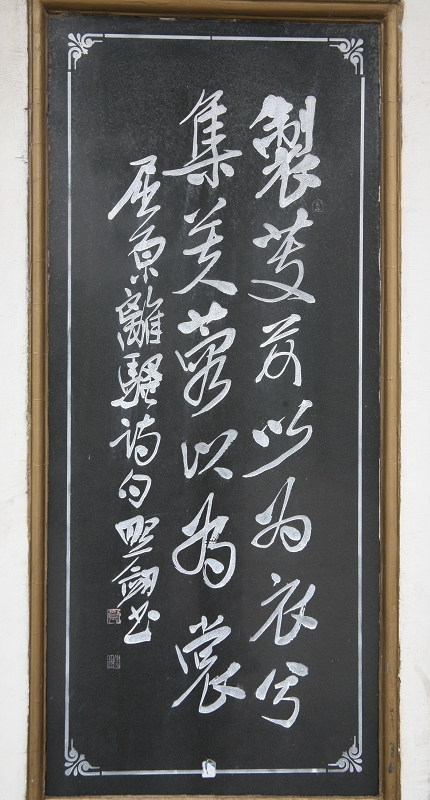 製芰荷以为衣兮
集芙蓉以为裳
屈原離騷詩句 書